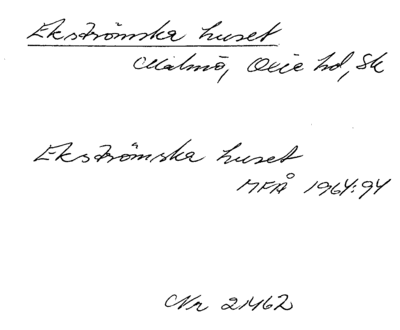 Ekströmska huset
Malmö, Oxie hd, Sk
Ekströmska huset
MFÅ 1964:94
Nr 21462